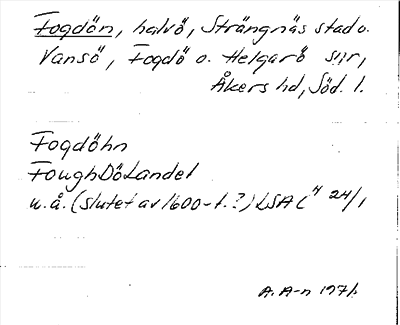 Fogdön, halvö, Strängnäs stad o.
Vansö, Fogdö o. Helgarö snr,
Åkers hd, Söd. l.
Fogdöhn
FoughDöLandet
u.å. (slutet av 1600-t.?) LSA C4 24/1
A. A-n 1971